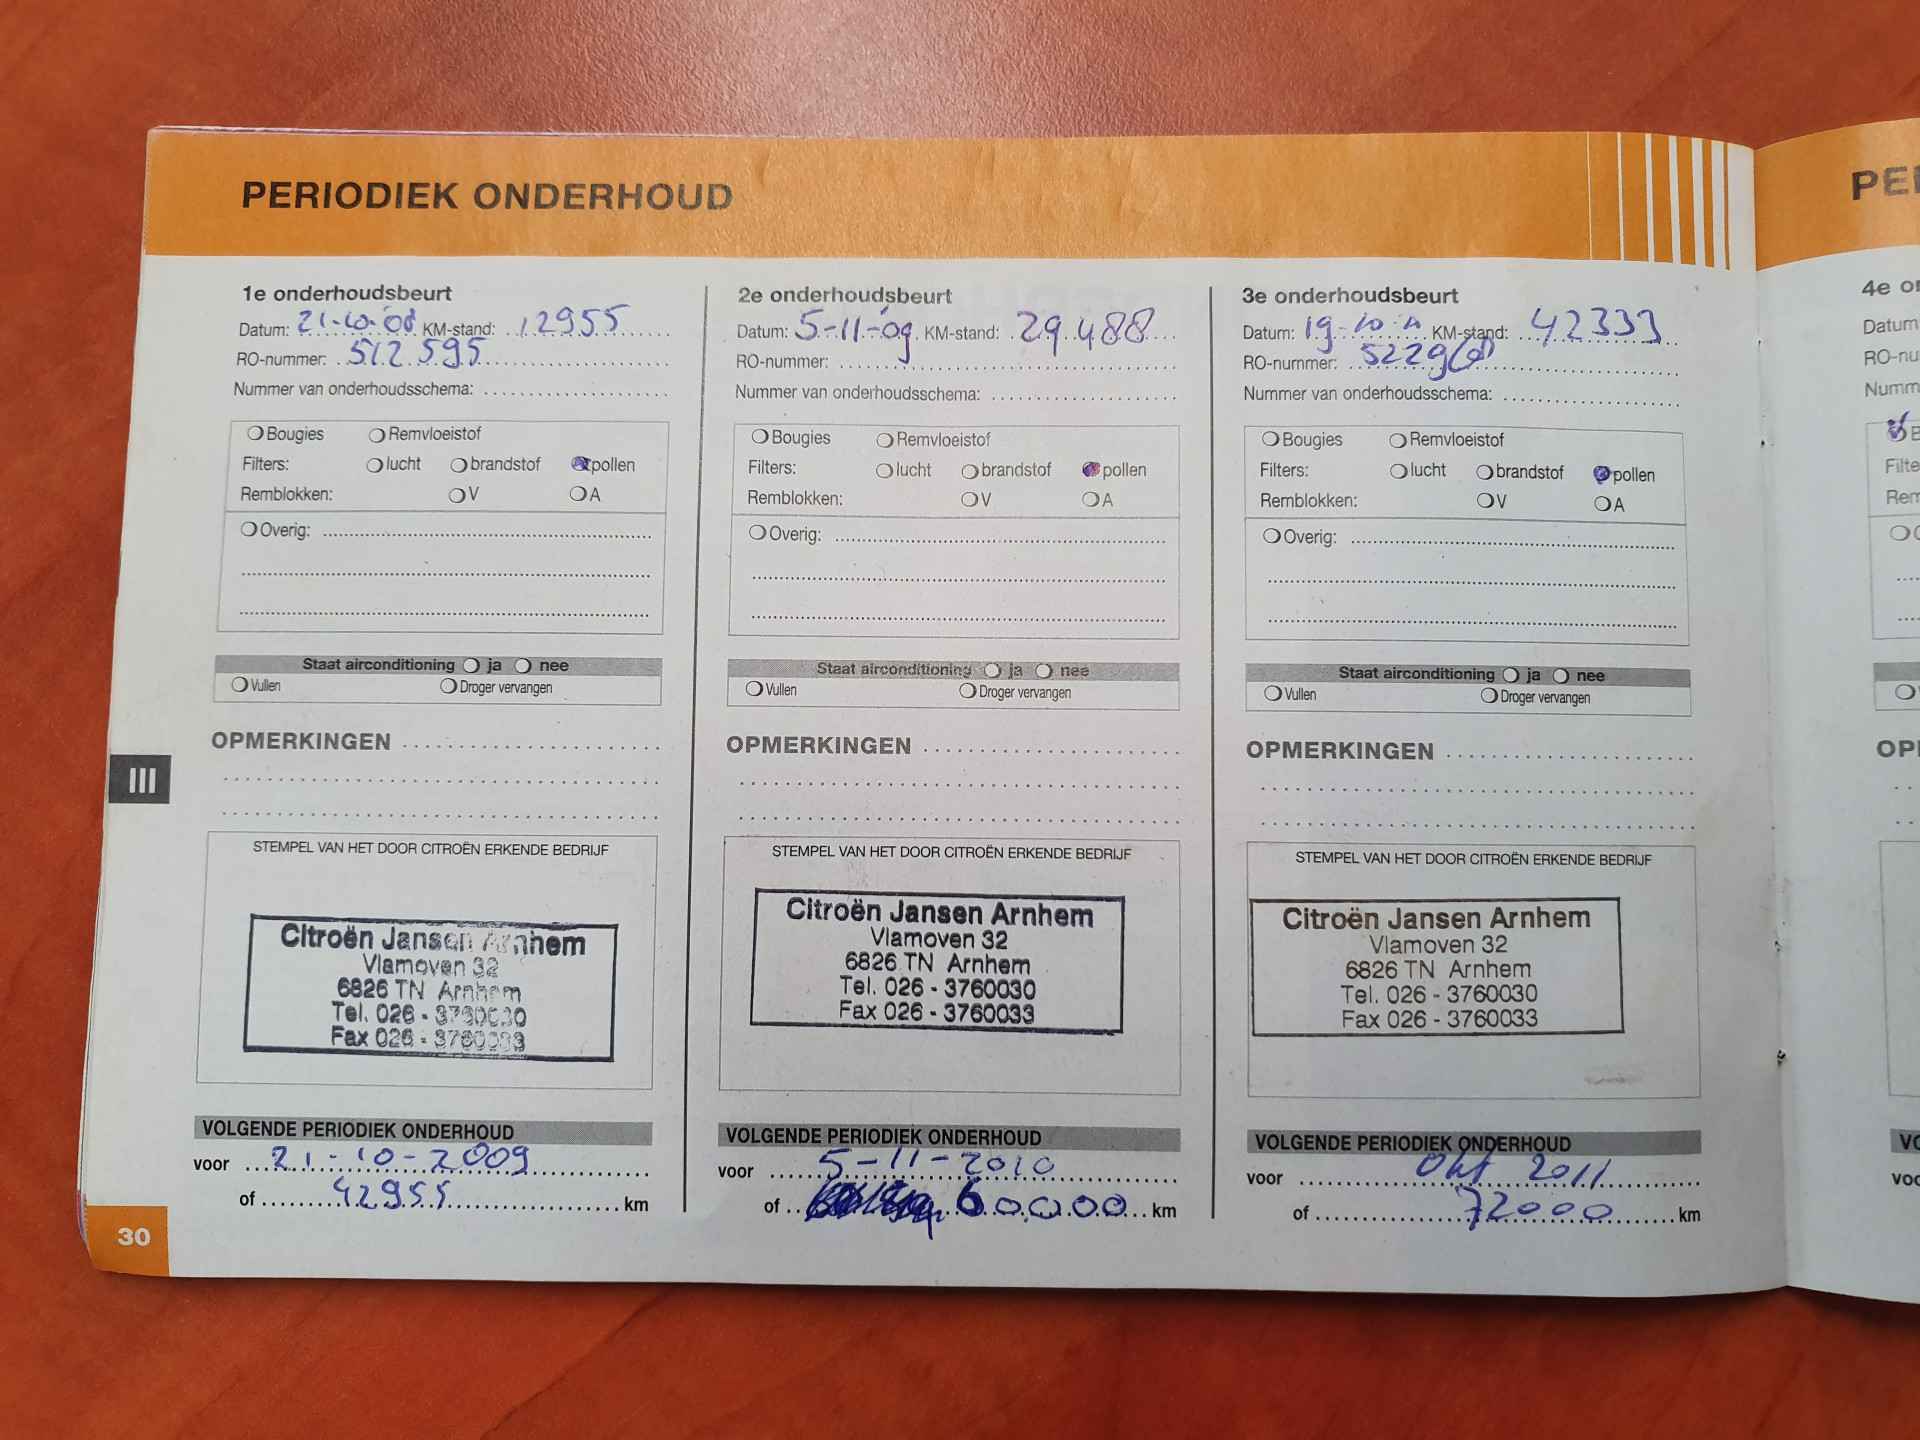 PERIODIEK ONDERHOUD
1e onderhoudsbeurt
Datum: 21-10-08 KM-stand: 12955
RO-nummer: 512595
Nummer van onderhoudsschema:
Bougies Remvloeistof
Filters: lucht brandstof pollen
Remblokken: V A
Overig:
Staat airconditioning ja nee
Vullen Droger vervangen
OPMERKINGEN
STEMPEL VAN HET DOOR CITROËN ERKENDE BEDRIJF
Citroën Jansen Arnhem
Vlamoven 32
6826 TN Arnhem
Tel. 026 - 3760030
Fax 026 - 3760033
VOLGENDE PERIODIEK ONDERHOUD
voor 21-10-2009
of 42955 km
2e onderhoudsbeurt
Datum: 5-11-09 KM-stand: 29.488
RO-nummer:
Nummer van onderhoudsschema:
Bougies Remvloeistof
Filters: lucht brandstof pollen
Remblokken: V A
Overig:
Staat airconditioning ja nee
Vullen Droger vervangen
OPMERKINGEN
STEMPEL VAN HET DOOR CITROËN ERKENDE BEDRIJF
Citroën Jansen Arnhem
Vlamoven 32
6826 TN Arnhem
Tel. 026 - 3760030
Fax 026 - 3760033
VOLGENDE PERIODIEK ONDERHOUD
voor 5-11-2010
of 60000 km
3e onderhoudsbeurt
Datum: KM-stand: 42333
RO-nummer:
Nummer van onderhoudsschema:
Bougies Remvloeistof
Filters: lucht brandstof pollen
Remblokken: V A
Overig:
Staat airconditioning ja nee
Vullen Droger vervangen
OPMERKINGEN
STEMPEL VAN HET DOOR CITROËN ERKENDE BEDRIJF
Citroën Jansen Arnhem
Vlamoven 32
6826 TN Arnhem
Tel. 026 - 3760030
Fax 026 - 3760033
VOLGENDE PERIODIEK ONDERHOUD
voor Okt 2011
of 72000 km
III
30
4e
Datum